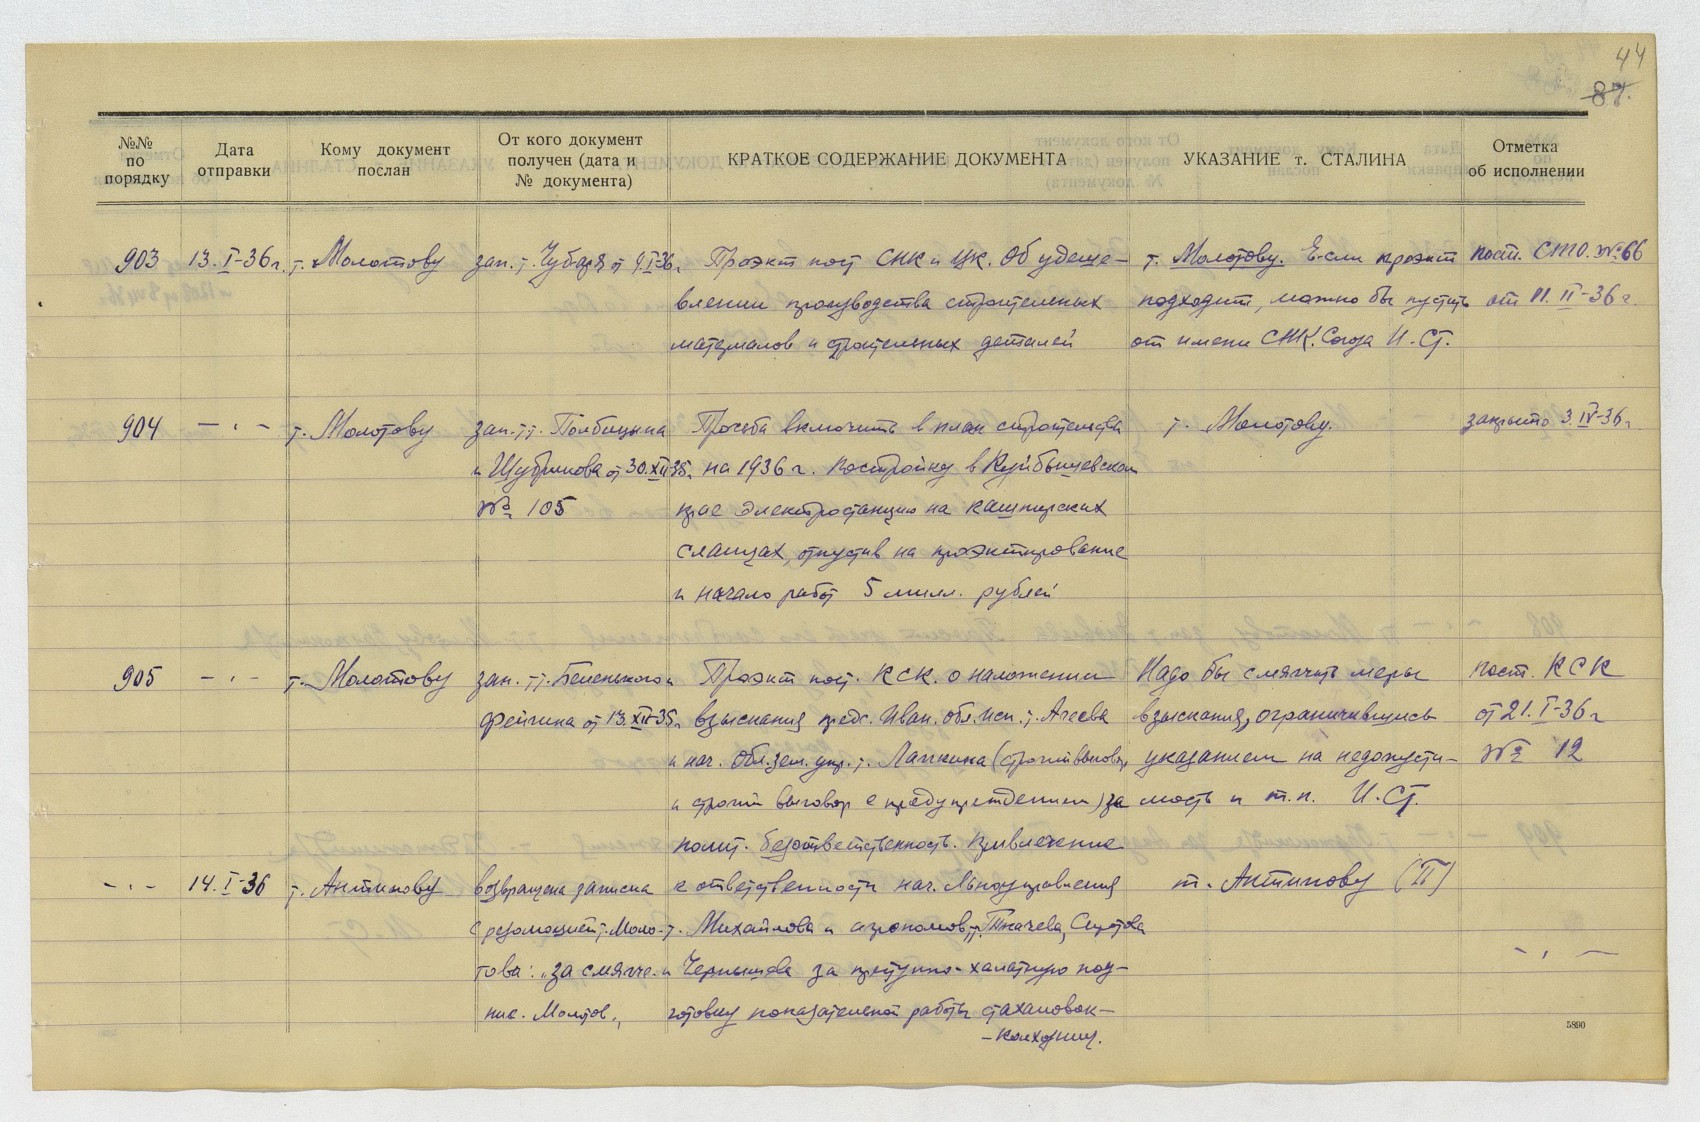 44
87.
№№ по порядку
Дата отправки
Кому документ послан
От кого документ получен (дата и № документа)
КРАТКОЕ СОДЕРЖАНИЕ ДОКУМЕНТА
УКАЗАНИЕ т. СТАЛИНА
Отметка об исполнении
903 13.I-36г. т. Молотову зап. т. Чубаря от 9.I-36г. Проэкт пост СНК и ЦК. Об удеше- т. Молотову. Если проэкт пост. СТО. №66
влении производства строительных подходит, можно бы пустить от 11.II-36г.
материалов и строительных деталей от имени СНК. Союза И. Ст.
904 — " — т. Молотову зап. тт. Полбицына Просьба включить в план строительства т. Молотову. закрыто 3.IV-36г.
и Шубрикова от 30.XII-35г. на 1936 г. постройку в Куйбышевском
№ 105 крае электростанцию на кашпирских
сланцах, отпустив на проэктирование
и начало работ 5 милл. рублей
905 — " — т. Молотову зап. тт. Беленького и Проэкт пост. КСК. о наложении Надо бы смягчить меры пост. КСК
Фейгина от 13.XII-35г. взыскания предс. Иван. обл. исп. т. Агеева взыскания, ограничившись от 21.I-36г
и нач. Обл. зем. упр. т. Лапкина (строгий выговор указанием на недопусти- № 12
и строгий выговор с предупреждением) за мость и т. п. И. Ст.
полит. безответственность. Привлечение
— " — 14.I-36 т. Антипову возвращена записка к ответственности нач. Льноуправления т. Антипову (П)
с резолюцией т. Моло- т. Михайлова и агрономов тт. Ткачева, Серотова
това: „за смягче- и Чернышева за преступно-халатную под- — " —
ние. Молотов„ готовку показательной работы стахановок-
-колхозниц.
5890